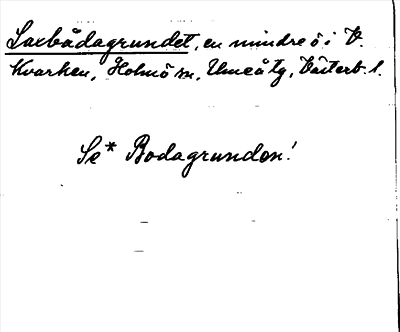 Laxbådagrundet, en mindre ö i V.
Kvarken, Holmö sn, Umeå tg, Västerb. l.
Se* Bodagrunden!